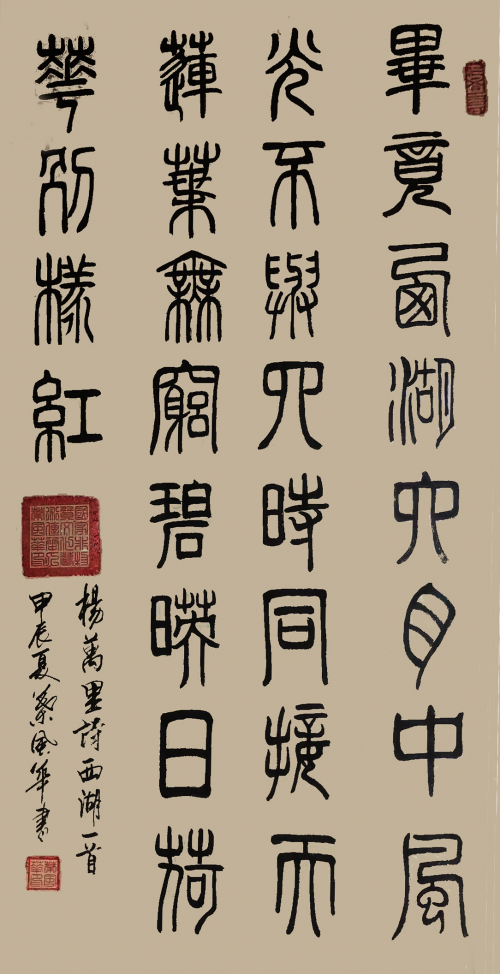 畢竟西湖六月中風
光不與四時同接天
蓮葉無窮碧暎日荷
華別樣紅
楊萬里詩西湖一首
甲辰夏華書